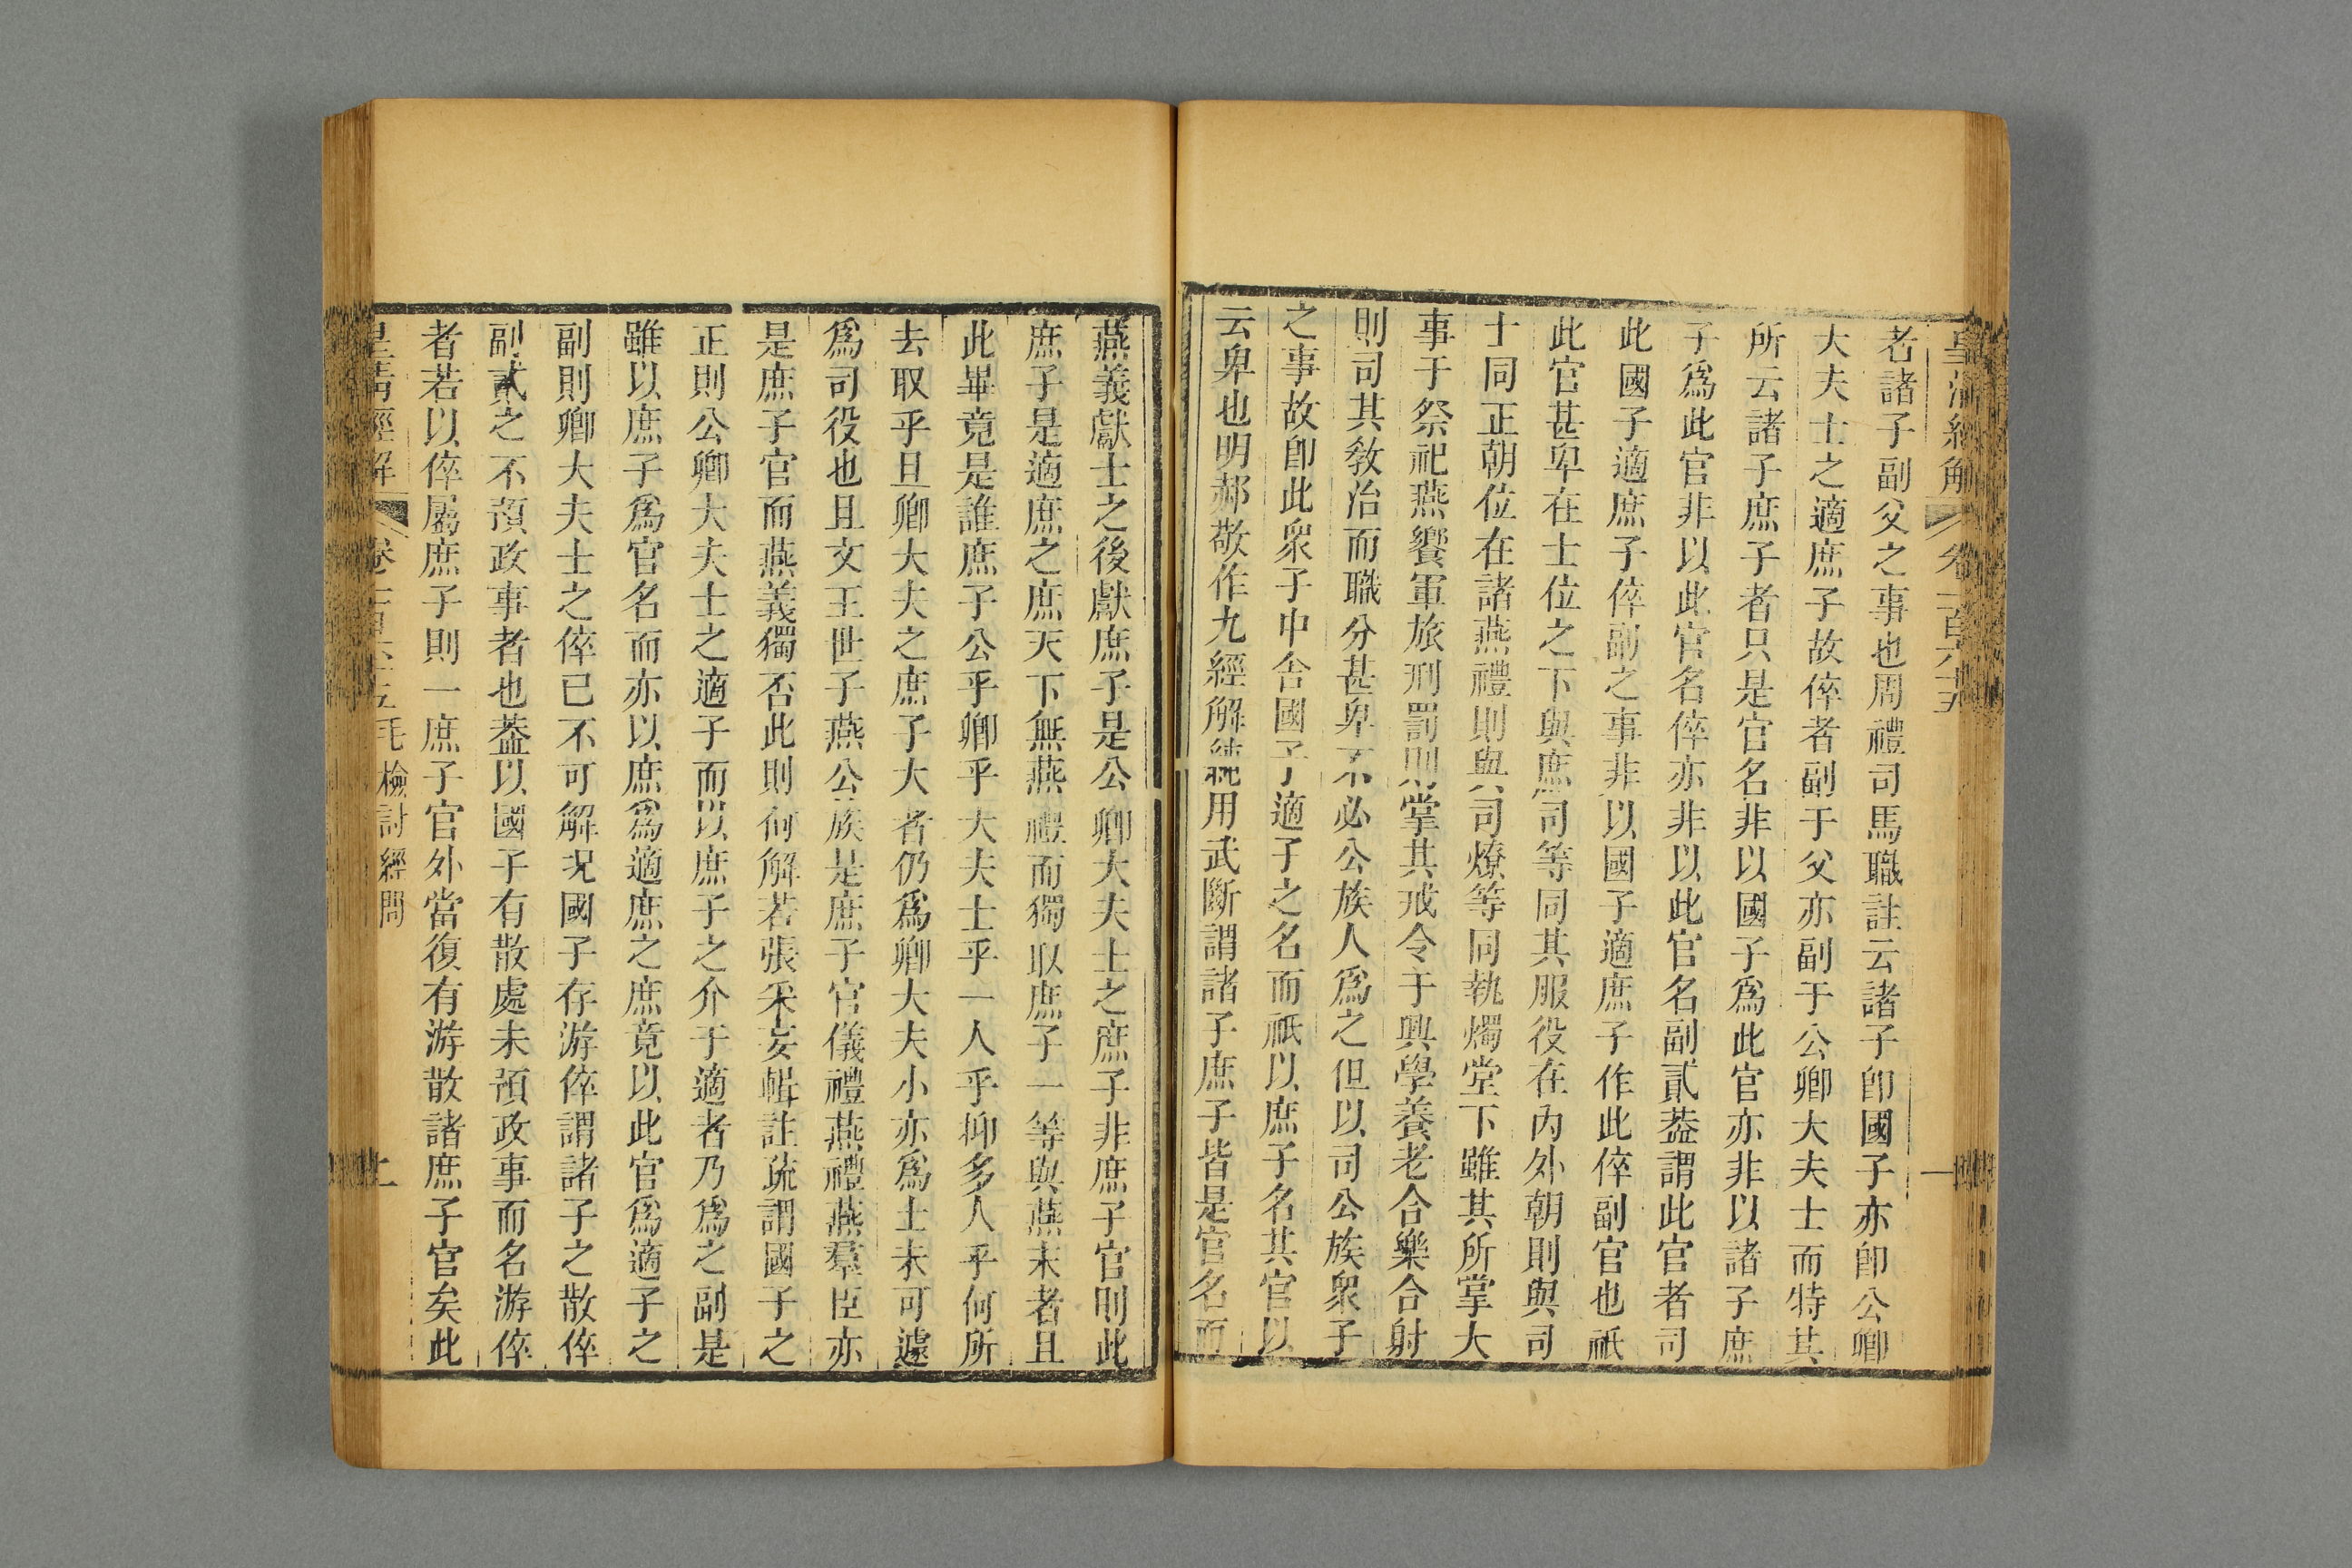 皇清經解 卷一百六十五
者諸子副父之事也周禮司馬職註云諸子卽國子亦卽公卿
大夫士之適庶子故倅者副于父亦副于公卿大夫士而特其
所云諸子庶子者只是官名非以國子爲此官亦非以諸子庶
子爲此官非以此官名倅亦非以此官名副貳葢謂此官者司
此國子適庶子倅副之事非以國子適庶子作此倅副官也祇
此官甚卑在士位之下與庶司等同其服役在內外朝則與司
士同正朝位在諸燕禮則與司燎等同執燭堂下雖其所掌大
事于祭祀燕饗軍旅刑罰則掌其戒令于興學養老合樂合射
則司其敎治而職分甚卑不必公族人爲之但以司公族衆子
之事故卽此衆子中舍國子適子之名而祇以庶子名其官以
云卑也明郝敬作九經解純用武斷謂諸子庶子皆是官名而
燕義獻士之後獻庶子是公卿大夫士之庶子非庶子官則此
庶子是適庶之庶天下無燕禮而獨取庶子一等與燕末者且
此畢竟是誰庶子公乎卿乎大夫士乎一人乎抑多人乎何所
去取乎且卿大夫之庶子大者仍爲卿大夫小亦爲士未可遽
爲司役也且文王世子燕公族是庶子官儀禮燕禮燕羣臣亦
是庶子官而燕義獨否此則何解若張采妄輯註疏謂國子之
正則公卿大夫士之適子而以庶子之介于適者乃爲之副是
雖以庶子爲官名而亦以庶爲適庶之庶竟以此官爲適子之
副則卿大夫士之倅已不可解况國子存游倅謂諸子之散倅
副貳之不預政事者也葢以國子有散處未預政事而名游倅
者若以倅屬庶子則一庶子官外當復有游散諸庶子官矣此
皇淸經解 卷一百六十五 毛檢討經問 十一